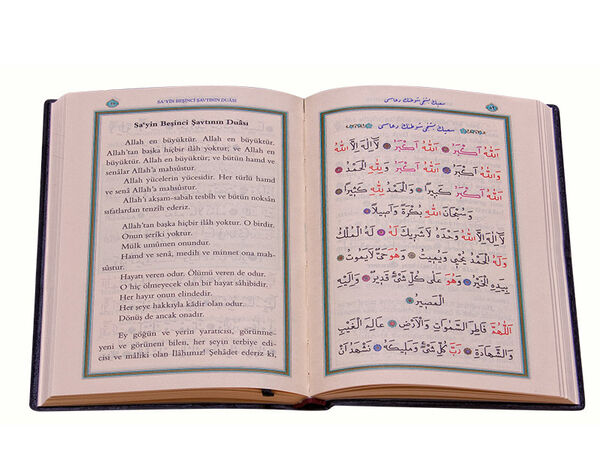 SA'YİN BEŞİNCİ ŞAVTININ DUÂSI
Sa'yin Beşinci Şavtının Duâsı
Allah en büyüktür. Allah en büyüktür.
Allah'tan başka hiçbir ilâh yoktur; ve Allah en
büyüktür. Allah en büyüktür; ve bütün hamd ve
senâlar Allah'a mahsûstur.
Allah yücelerin yücesidir. Her türlü hamd
ve senâ Allah'a mahsûstur.
Allah'ı akşam-sabah tesbih ve bütün noksan
sıfatlardan tenzîh ederiz.
Allah'tan başka hiçbir ilâh yoktur. O birdir.
Onun şerîki yoktur.
Mülk umûmen onundur.
Hamd ve senâ, medih ve minnet ona mah-
sûstur.
Hayatı veren odur. Ölümü veren de odur.
O hiç ölmeyecek olan bir hayat sâhibidir.
Her hayır onun elindedir.
Her şeye hakkıyla kâdir olan odur.
Dönüş de ancak onadır.
Ey göğün ve yerin yaratıcısı, görünme-
yeni ve görüneni bilen, her şeyin terbiye edi-
cisi ve mâliki olan İlâhımız! Şehâdet ederiz ki,
سعيك بشنجى شوطنك دعاسى
سعيك بشنجى شوطنك دعاسى
اَللّٰهُ اَكْبَرُ اَللّٰهُ اَكْبَرُ لَا اِلٰهَ اِلَّا اللّٰهُ
وَاللّٰهُ اَكْبَرُ اَللّٰهُ اَكْبَرُ وَلِلّٰهِ الْحَمْدُ
اَللّٰهُ اَكْبَرُ كَبِيرًا وَالْحَمْدُ لِلّٰهِ كَثِيرًا
وَسُبْحَانَ اللّٰهِ بُكْرَةً وَاَصِيلًا
لَا اِلٰهَ اِلَّا اللّٰهُ وَحْدَهُ لَا شَرِيكَ لَهُ لَهُ الْمُلْكُ
وَلَهُ الْحَمْدُ يُحْيِى وَيُمِيتُ وَهُوَ حَىٌّ لَا يَمُوتُ
بِيَدِهِ الْخَيْرُ وَهُوَ عَلٰى كُلِّ شَىْءٍ قَدِيرٌ وَاِلَيْهِ
الْمَصِيرُ
اَللّٰهُمَّ فَاطِرَ السَّمٰوَاتِ وَالْاَرْضِ عَالِمَ الْغَيْبِ
وَالشَّهَادَةِ رَبَّ كُلِّ شَىْءٍ وَمَلِيكَهُ نَشْهَدُ اَنْ